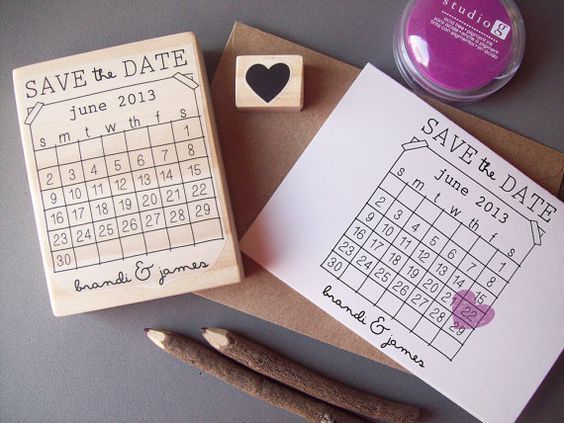 SAVE the DATE
june 2013
s m t w th f s
1
2 3 4 5 6 7 8
9 10 11 12 13 14 15
16 17 18 19 20 21 22
23 24 25 26 27 28 29
30
brandi & james
SAVE the DATE
june 2013
s m t w th f s
1
2 3 4 5 6 7 8
9 10 11 12 13 14 15
16 17 18 19 20 21 22
23 24 25 26 27 28 29
30
brandi & james
studio g
acid free • pigment ink